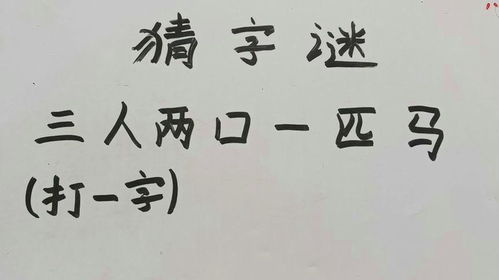 猜字谜
三人两口一匹马
(打一字)